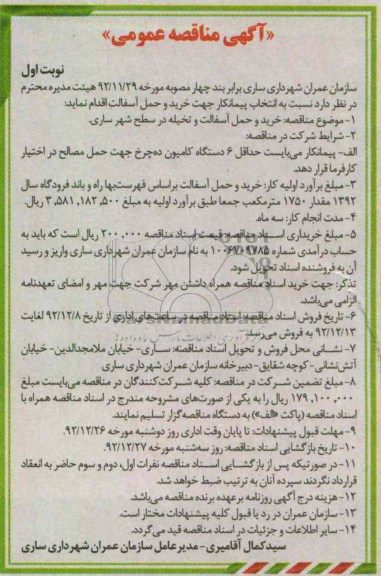 «آگهی مناقصه عمومی»
نوبت اول
سازمان عمران شهرداری ساری برابر بند چهار مصوبه مورخه ۹۲/۱۱/۲۹ هیئت مدیره محترم
در نظر دارد نسبت به انتخاب پیمانکار جهت خرید و حمل آسفالت اقدام نماید:
۱-موضوع مناقصه: خرید و حمل آسفالت و تخیله در سطح شهر ساری.
۲- شرایط شرکت در مناقصه:
الف- پیمانکار می‌بایست حداقل ۶ دستگاه کامیون ده‌چرخ جهت حمل مصالح در اختیار
کارفرما قرار دهد.
۳-مبلغ برآورد اولیه کار: خرید و حمل آسفالت براساس فهرست‌بها راه و باند فرودگاه سال
۱۳۹۲ مقدار ۱۷۵۰ مترمکعب جمعا طبق برآورد اولیه به مبلغ ۳,۵۸۱,۱۸۲,۵۰۰ ریال.
۴- مدت انجام کار: سه ماه.
۵- مبلغ خریداری اسناد مناقصه: قیمت اسناد مناقصه ۲۰۰,۰۰۰ ریال است که باید به
حساب درآمدی شماره ۱۰۰۶۷۰۹۷۸۵ به نام سازمان عمران شهرداری ساری واریز و رسید
آن به فروشنده اسناد تحویل شود.
تذکر: جهت خرید اسناد مناقصه همراه داشتن مهر شرکت جهت مهر و امضای تعهدنامه
الزامی می‌باشد.
۶- تاریخ فروش اسناد مناقصه: اسناد مناقصه در ساعت‌های اداری از تاریخ ۹۲/۱۲/۸ لغایت
۹۲/۱۲/۱۳ به فروش می‌رسد.
۷- نشانی محل فروش و تحویل اسناد مناقصه: ساری- خیابان ملامجدالدین- خیابان
آتش‌نشانی- کوچه شقایق- دبیرخانه سازمان عمران شهرداری ساری
۸-مبلغ تضمین شرکت در مناقصه: کلیه شرکت‌کنندگان در مناقصه می‌بایست مبلغ
۱۷۹,۱۰۰,۰۰۰ ریال را به یکی از صورت‌های مشروحه مندرج در اسناد مناقصه همراه با
اسناد مناقصه (پاکت «الف») به دستگاه مناقصه‌گزار تسلیم نمایند.
۹-مهلت قبول پیشنهادات: تا پایان وقت اداری روز دوشنبه مورخه ۹۲/۱۲/۲۶.
۱۰- تاریخ بازگشایی اسناد مناقصه: روز سه‌شنبه مورخه ۹۲/۱۲/۲۷.
۱۱- در صورتیکه پس از بازگشایی اسناد مناقصه نفرات اول، دوم و سوم حاضر به انعقاد
قرارداد نگردند سپرده آنان به ترتیب ضبط خواهد شد.
۱۲-هزینه درج آگهی روزنامه برعهده برنده مناقصه می‌باشد.
۱۳-سازمان عمران در رد یا قبول کلیه پیشنهادات مختار است.
۱۴- سایر اطلاعات و جزئیات در اسناد مناقصه قید می‌گردد.
سیدکمال آقامیری- مدیرعامل سازمان عمران شهرداری ساری